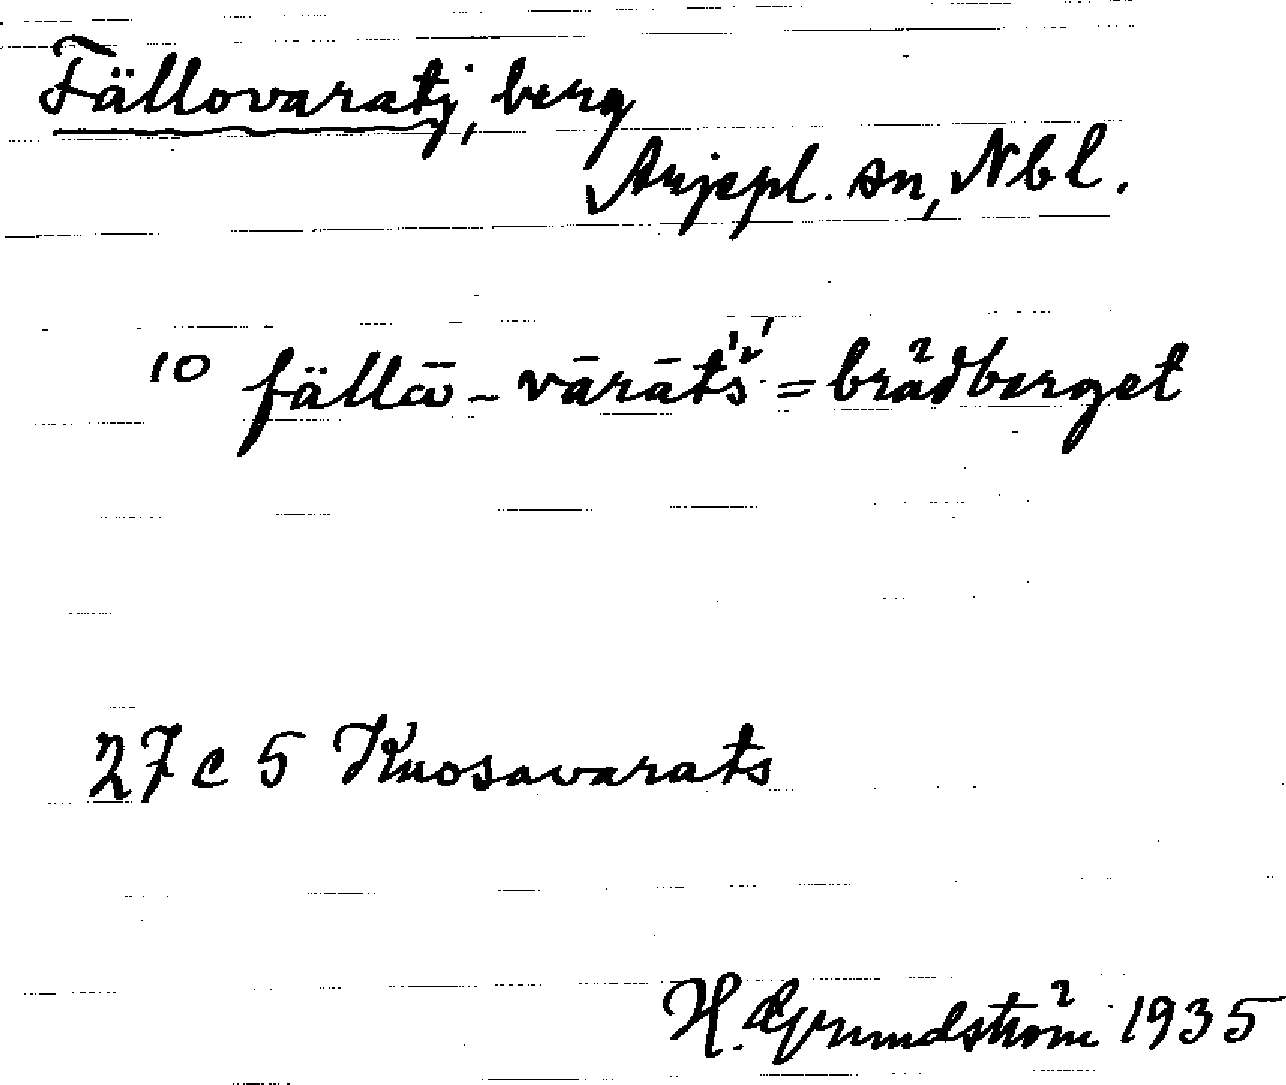 Fällovaratj, berg
Arjepl. sn, Nbl.
10 fällā - vārāts̀' = brådberget
27 c 5 Kuosavarats
H. Grundström 1935